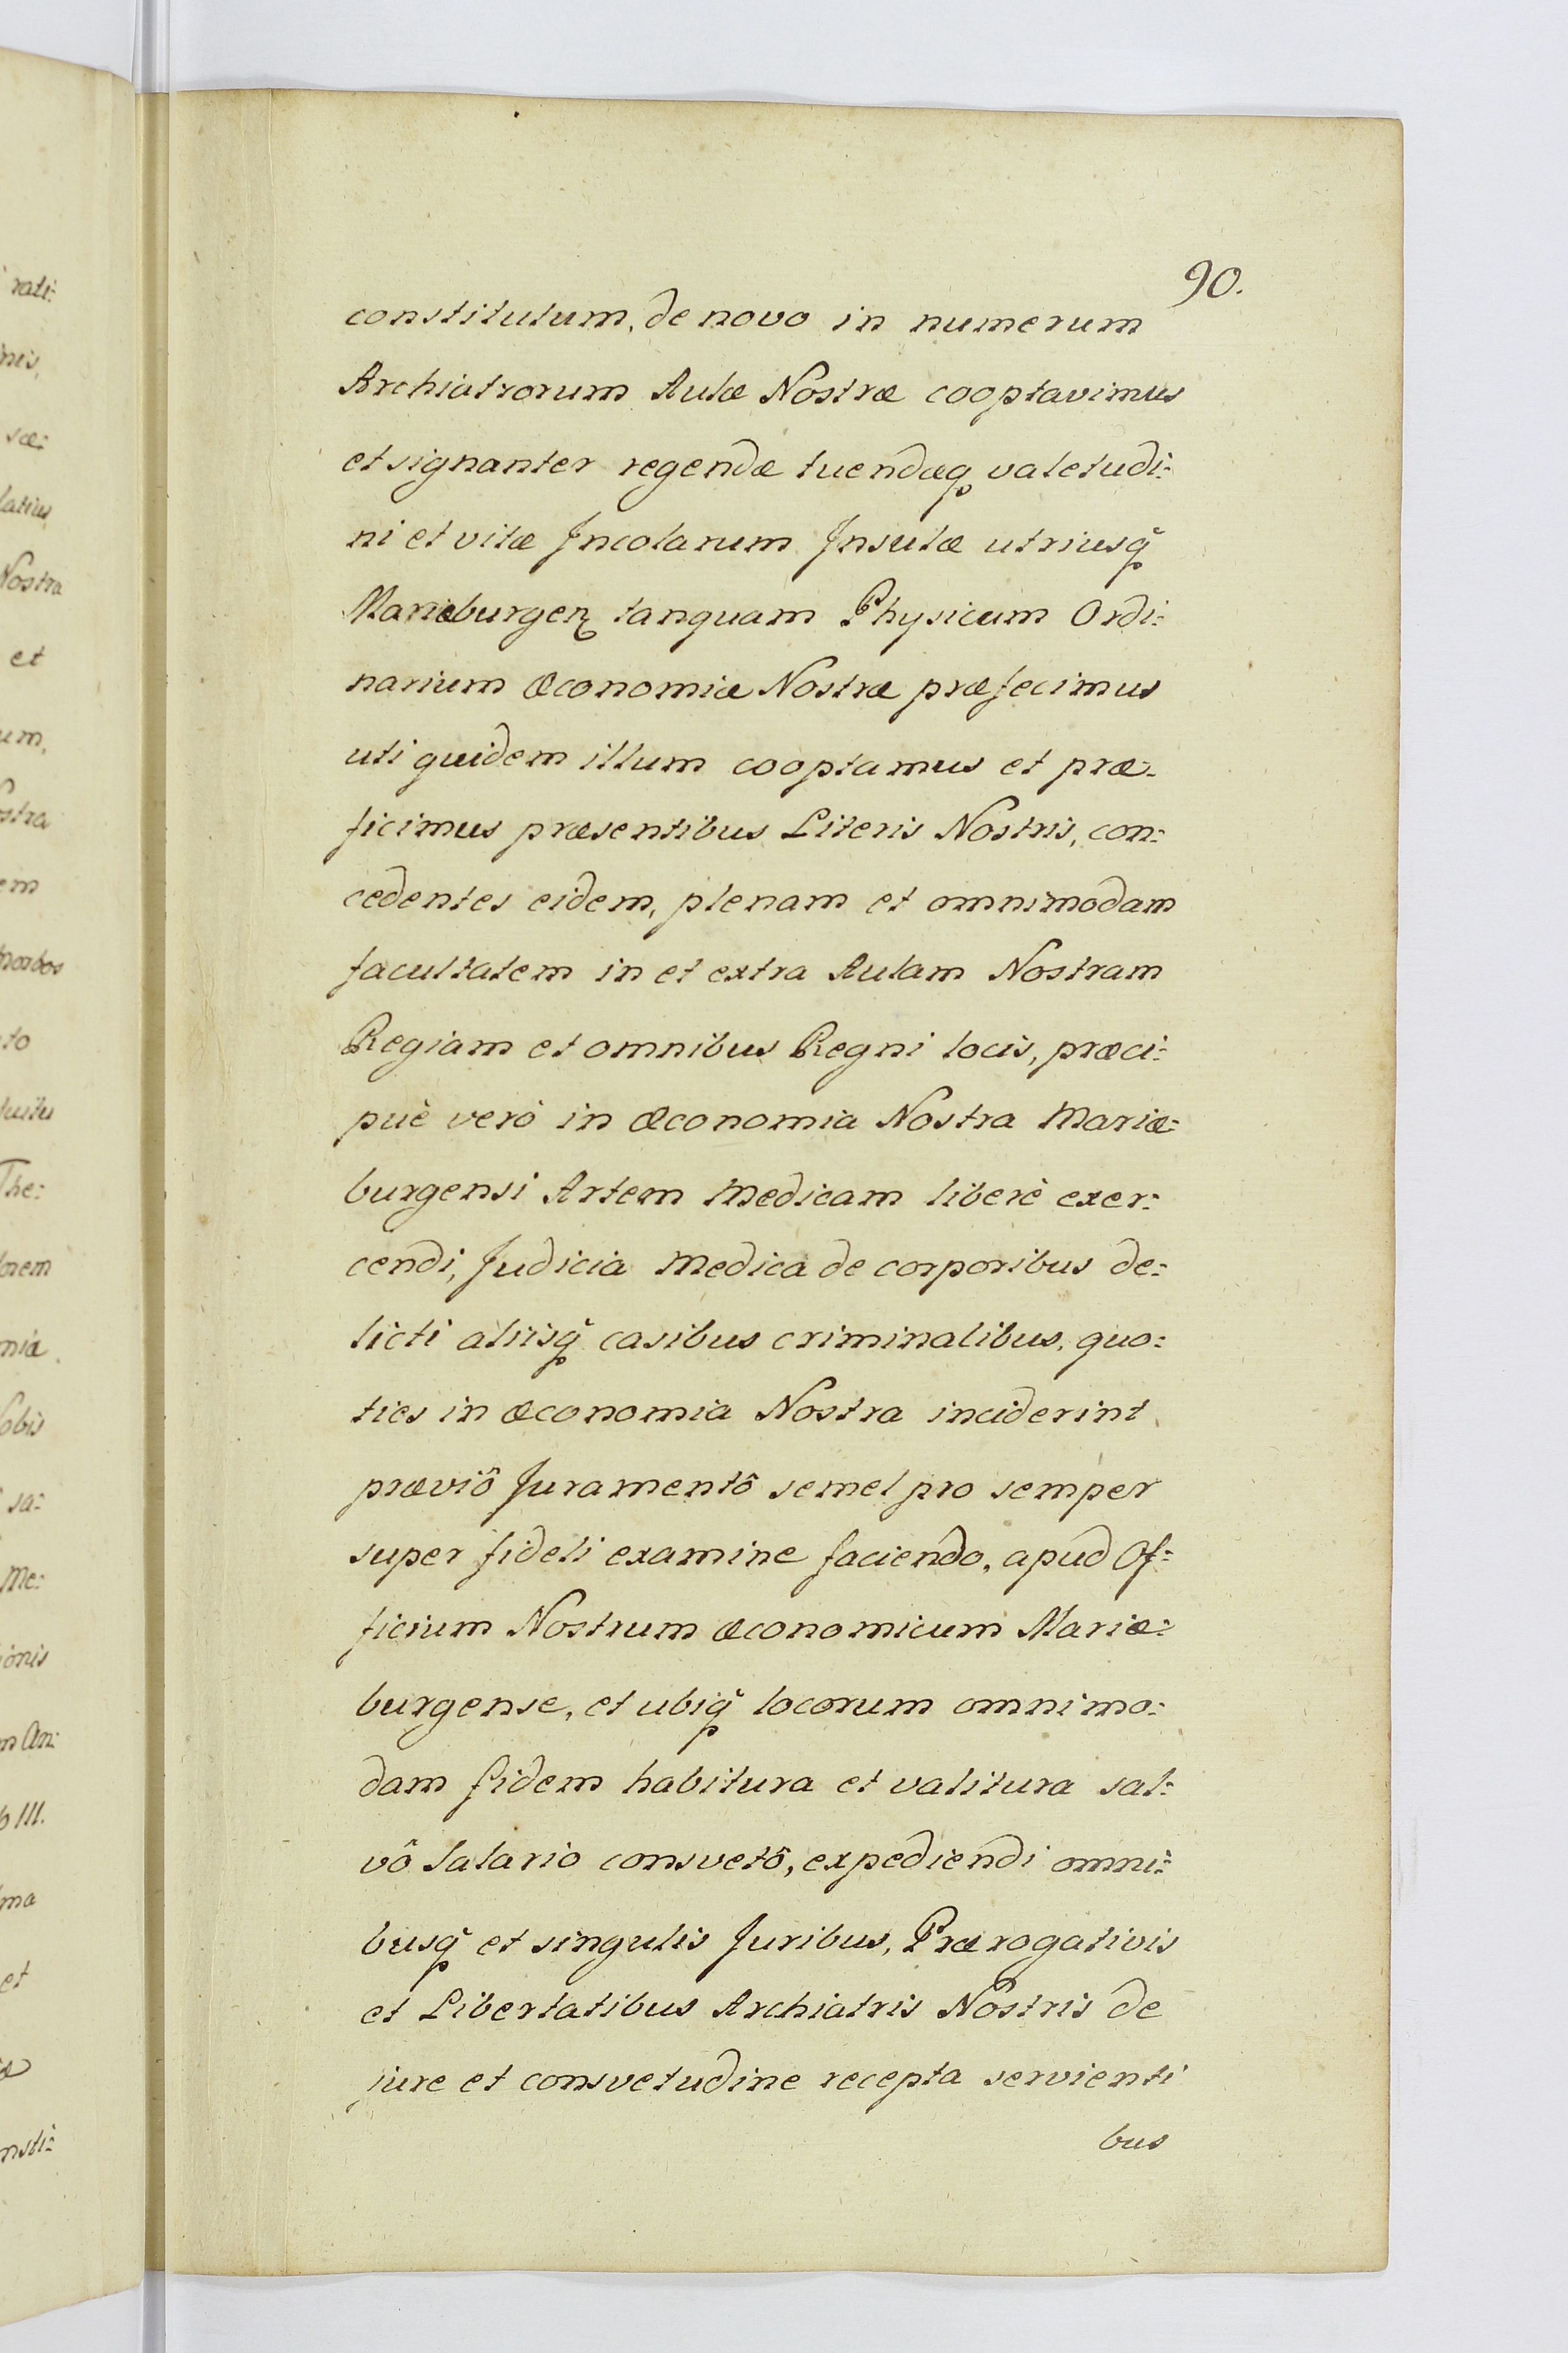 90.
constitutum, de novo in numerum
Archiatrorum Aulæ Nostræ cooptavimus
et signanter regendæ tuendæq valetudi:
ni et vitæ Incolarum Insulæ utriusq̃
Mariæburgen tanquam Physicum Ordi:
narium Œconomiæ Nostræ præfecimus
uti quidem illum cooptamus et præ:
ficimus præsentibus Literis Nostris, con:
cedentes eidem, plenam et omnimodam
facultatem in et extra Aulam Nostram
Regiam et omnibus Regni locis, præci:
puè verò in Œconomia Nostra Mariæ:
burgensi Artem Medicam liberè exer:
cendi, Judicia Medica de corporibus de:
licti aliisq̃ casibus criminalibus, quo:
ties in Œconomia Nostra inciderint,
præviô Juramentô semel pro semper
super fideli examine faciendo, apud Of:
ficium Nostrum Œconomicum Mariæ:
burgense, et ubiq̃ locorum omnimo:
dam fidem habitura et valitura sal:
vô Salario consvetô, expediendi omni:
busq̃ et singulis Juribus, Prærogativis
et Libertatibus Archiatris Nostris de
jure et consvetudine recepta servienti
bus
rati:
sæ:
latius
Nostra
et
um,
em
morbos
to
The:
orem
sa:
Me:
ionis
m An:
III.
ma
et
nsti: